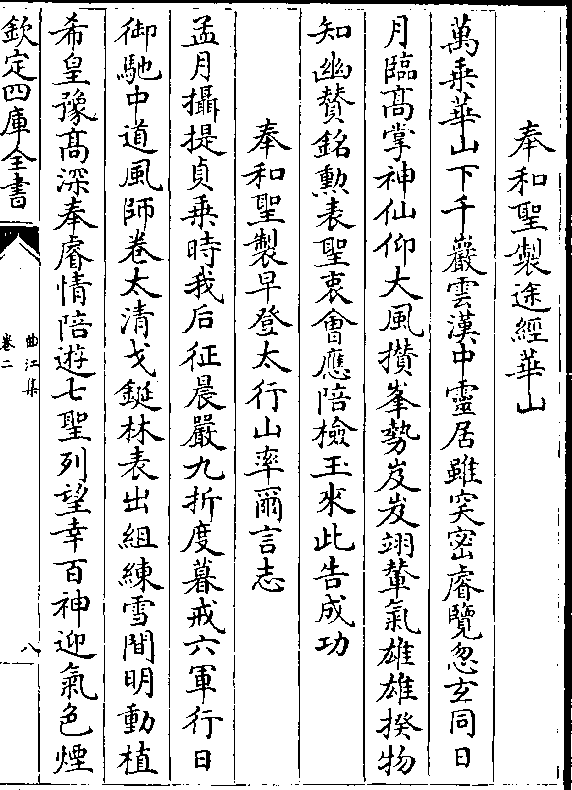 奉和聖製途經華山
萬乗華山下千巖雲漢中靈居雖突密睿覽忽玄同日
月臨髙掌神仙仰大風攅峯勢岌岌翊輦氣雄雄揆物
知幽賛銘勲表聖衷㑹應陪檢玉來此告成功
奉和聖製早登太行山率爾言志
孟月攝提貞乗時我后征晨嚴九折度暮戒六軍行日
御馳中道風師卷太清戈鋋林表出組練雪間明動植
希皇豫髙深奉睿情陪遊七聖列望幸百神迎氣色煙
欽定四庫全書
曲江集
卷二
八